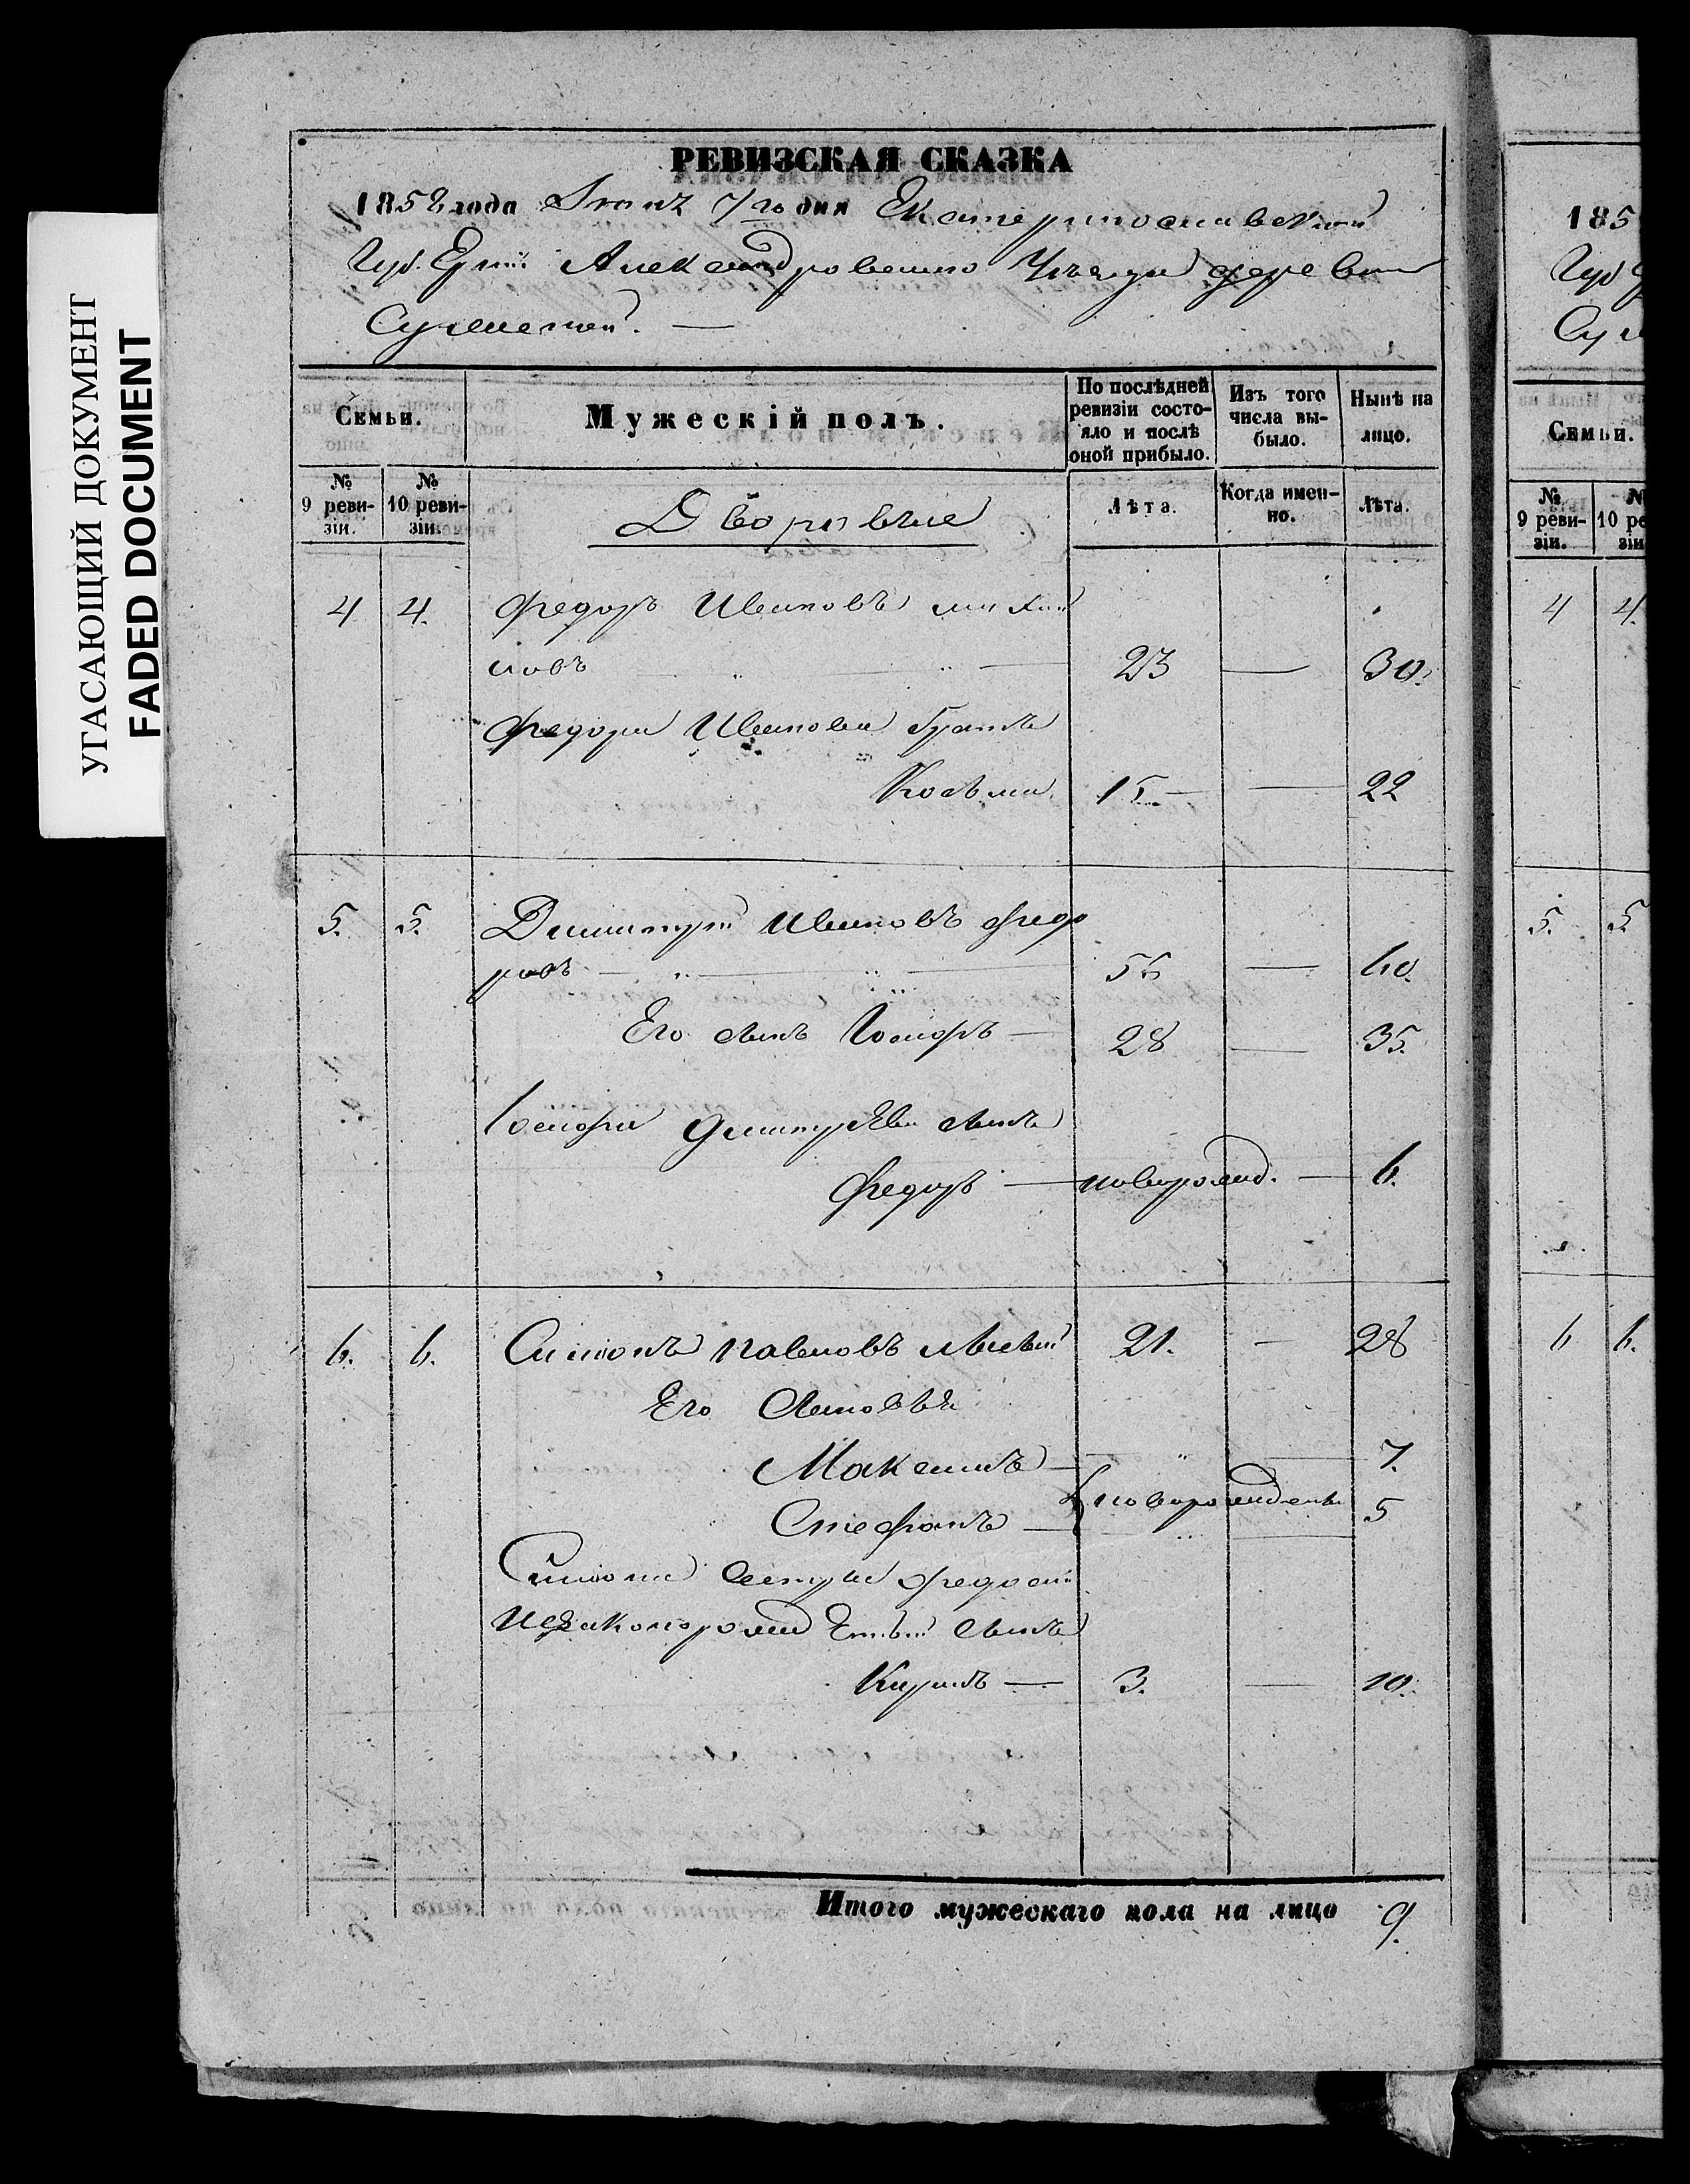 УГАСАЮЩИЙ ДОКУМЕНТ
FADED DOCUMENT
РЕВИЗСКАЯ СКАЗКА
1858 года 7го дня Екатеринославской
Губерніи Александровскаго Уѣзда деревни
Семьи.
Мужескій полъ.
По послѣдней ревизіи состояло и послѣ оной прибыло.
Изъ того числа выбыло.
Нынѣ на лицо.
№ 9 ревизіи.
№ 10 ревизіи.
Дворовые
Лѣта.
Когда именно.
Лѣта.
4 4. Федоръ Ивановъ Михай
ловъ — 23 — 30.
Федора Иванова братъ
Козьма 15 — 22
5. 5. Димитрій Ивановъ Федо
ровъ — 53 — 60.
Его сынъ — 28 — 35.
Дмитріева сынъ
Федоръ — новорожд. — 6.
6. 6. Симонъ Павловъ 21. — 28
Его Сыновья
Максимъ — 7.
новорожденны
Стефанъ — 5
Симона сестры Федосіи
Незаконорожденный сынъ
3. — 10.
Итого мужескаго пола на лицо 9.
185
Губ
Су
Семьи.
№ 9 ревизіи.
10 ре
4 4.
5. 5
6 6.